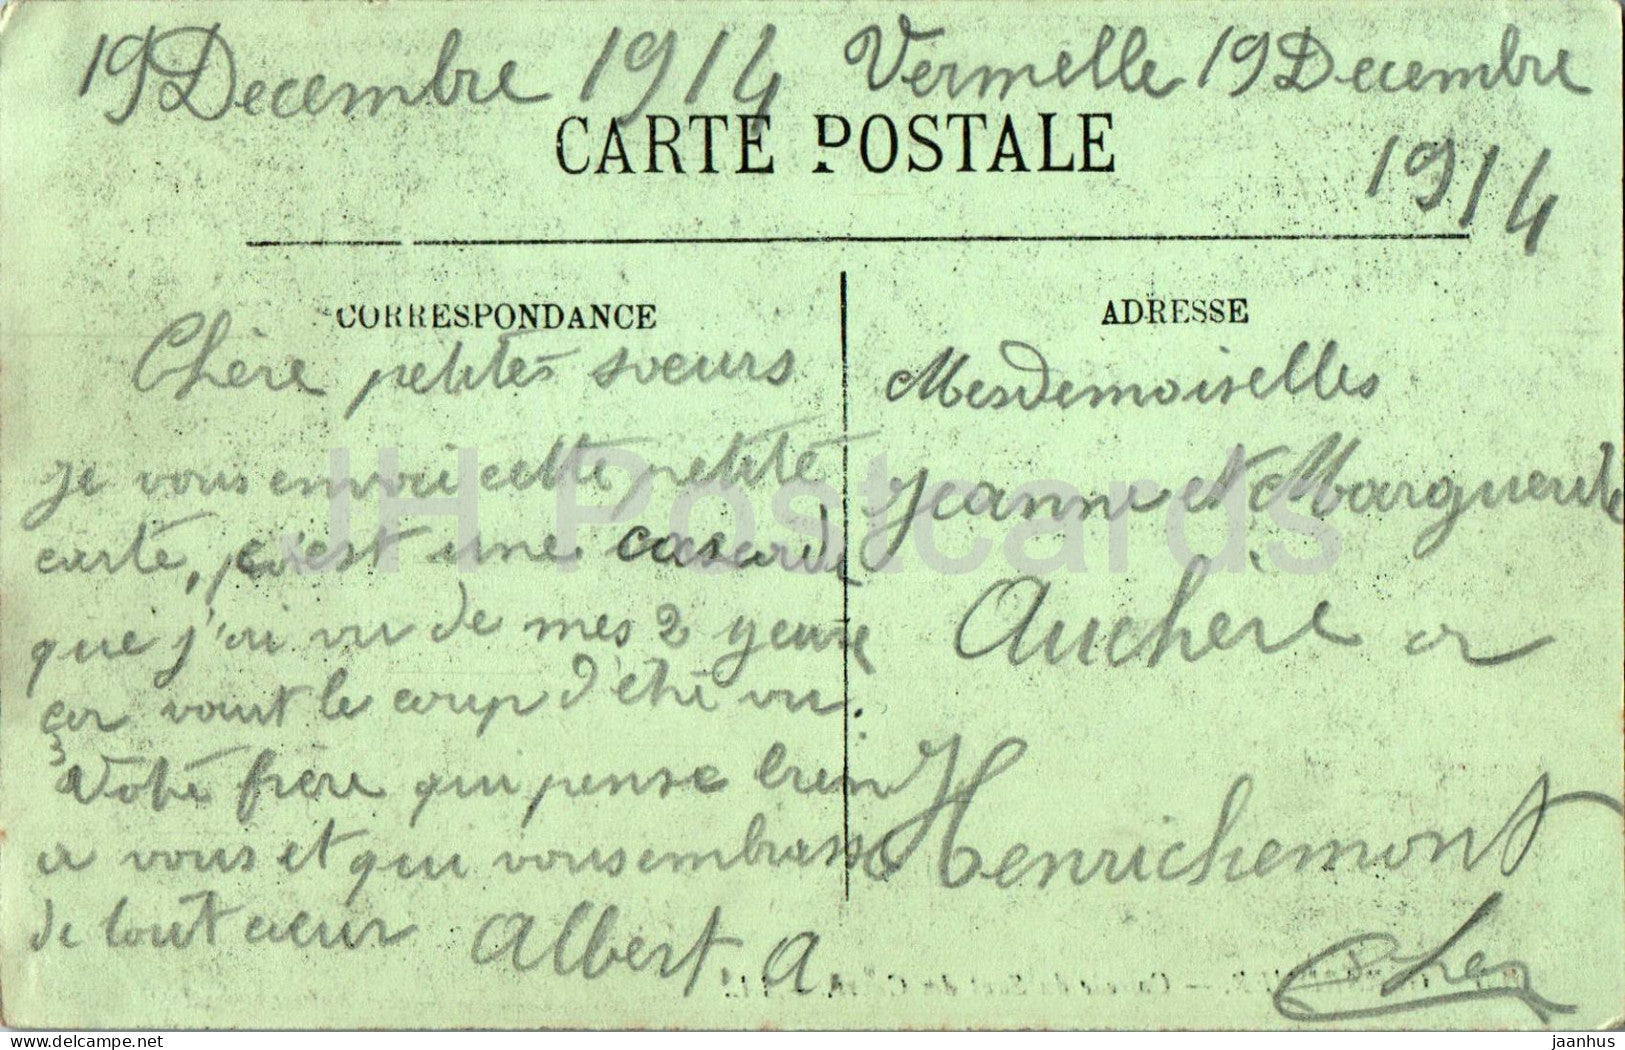 19 Decembre 1914 Vermelle 19 Decembre
1914
CARTE POSTALE
CORRESPONDANCE
Chère petites sœurs
je vous envoi cette petite
carte, c'est une cascade
que j'ai vu de mes 2 yeux
car vaut le coup d'être vu.
Votre frère qui pense bien
a vous et qui vous embrasse
de tout cœur Albert. A.
ADRESSE
Mesdemoiselles
Jeanne et Marguerite
Auchère a
Henrichemont
Cher
JH Postcards
delcampe.net
jaanhus